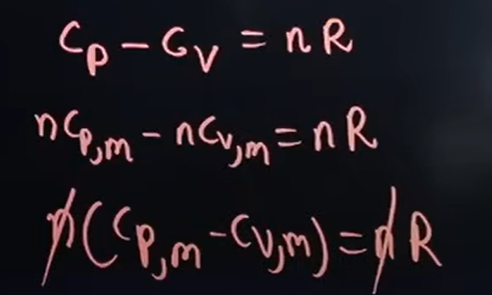 Cp - Cv = nR
nCp,m - nCv,m = nR
n(Cp,m - Cv,m) = nR